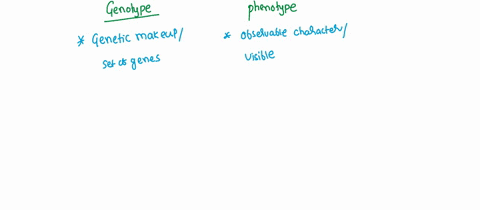 Genotype phenotype
* Genetic makeup/ * Observable character/
set of genes visible